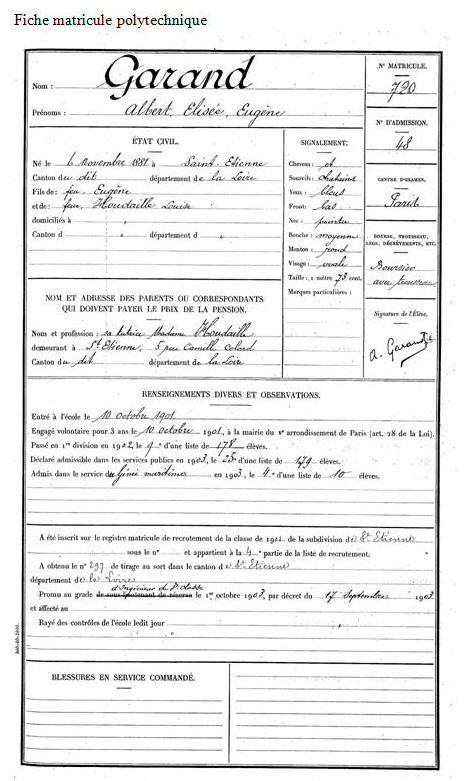 Fiche matricule polytechnique
Nom : Garand
Prénoms : Albert, Elisée, Eugène
ÉTAT CIVIL.
Né le 6 Novembre 1881 à Saint Etienne
Canton du dit département de la Loire
Fils de feu Eugène
et de feu Houdaille Louise
domiciliés à "
Canton d " département d "
NOM ET ADRESSE DES PARENTS OU CORRESPONDANTS
QUI DOIVENT PAYER LE PRIX DE LA PENSION.
Nom et profession : sa tutrice Madame Houdaille
demeurant à St Etienne, 5 rue Camille Colard
Canton du dit département de la Loire
SIGNALEMENT.
Cheveux : et
Sourcils : chatains
Yeux : bleus
Front : bas
Nez : pointu
Bouche : moyenne
Menton : rond
Visage : ovale
Taille : 1 mètre 73 cent.
Marques particulières :
N° MATRICULE.
720
N° D'ADMISSION.
48
CENTRE D'EXAMEN.
Paris
BOURSE, TROUSSEAU,
LEGS, DÉGRÈVEMENTS, ETC.
Boursier
avec trousseau
Signature de l'Élève.
A. Garand
RENSEIGNEMENTS DIVERS ET OBSERVATIONS.
Entré à l'école le 10 octobre 1901.
Engagé volontaire pour 3 ans le 10 octobre 1901, à la mairie du Ve arrondissement de Paris (art. 28 de la Loi).
Passé en 1re division en 1902, le 9e d'une liste de 178 élèves.
Déclaré admissible dans les services publics en 1903, le 25e d'une liste de 179 élèves.
Admis dans le service du Génie maritime en 1903, le 4e d'une liste de 10 élèves.
A été inscrit sur le registre matricule de recrutement de la classe de 1901 de la subdivision de St Etienne
sous le n° et appartient à la 4e partie de la liste de recrutement.
A obtenu le n° 297 de tirage au sort dans le canton de St Etienne
département de la Loire
d'Ingénieur de 3e classe
Promu au grade de sous-lieutenant de réserve le 1er octobre 1903, par décret du 17 Septembre 1903
et affecté au
Rayé des contrôles de l'école ledit jour
BLESSURES EN SERVICE COMMANDÉ.